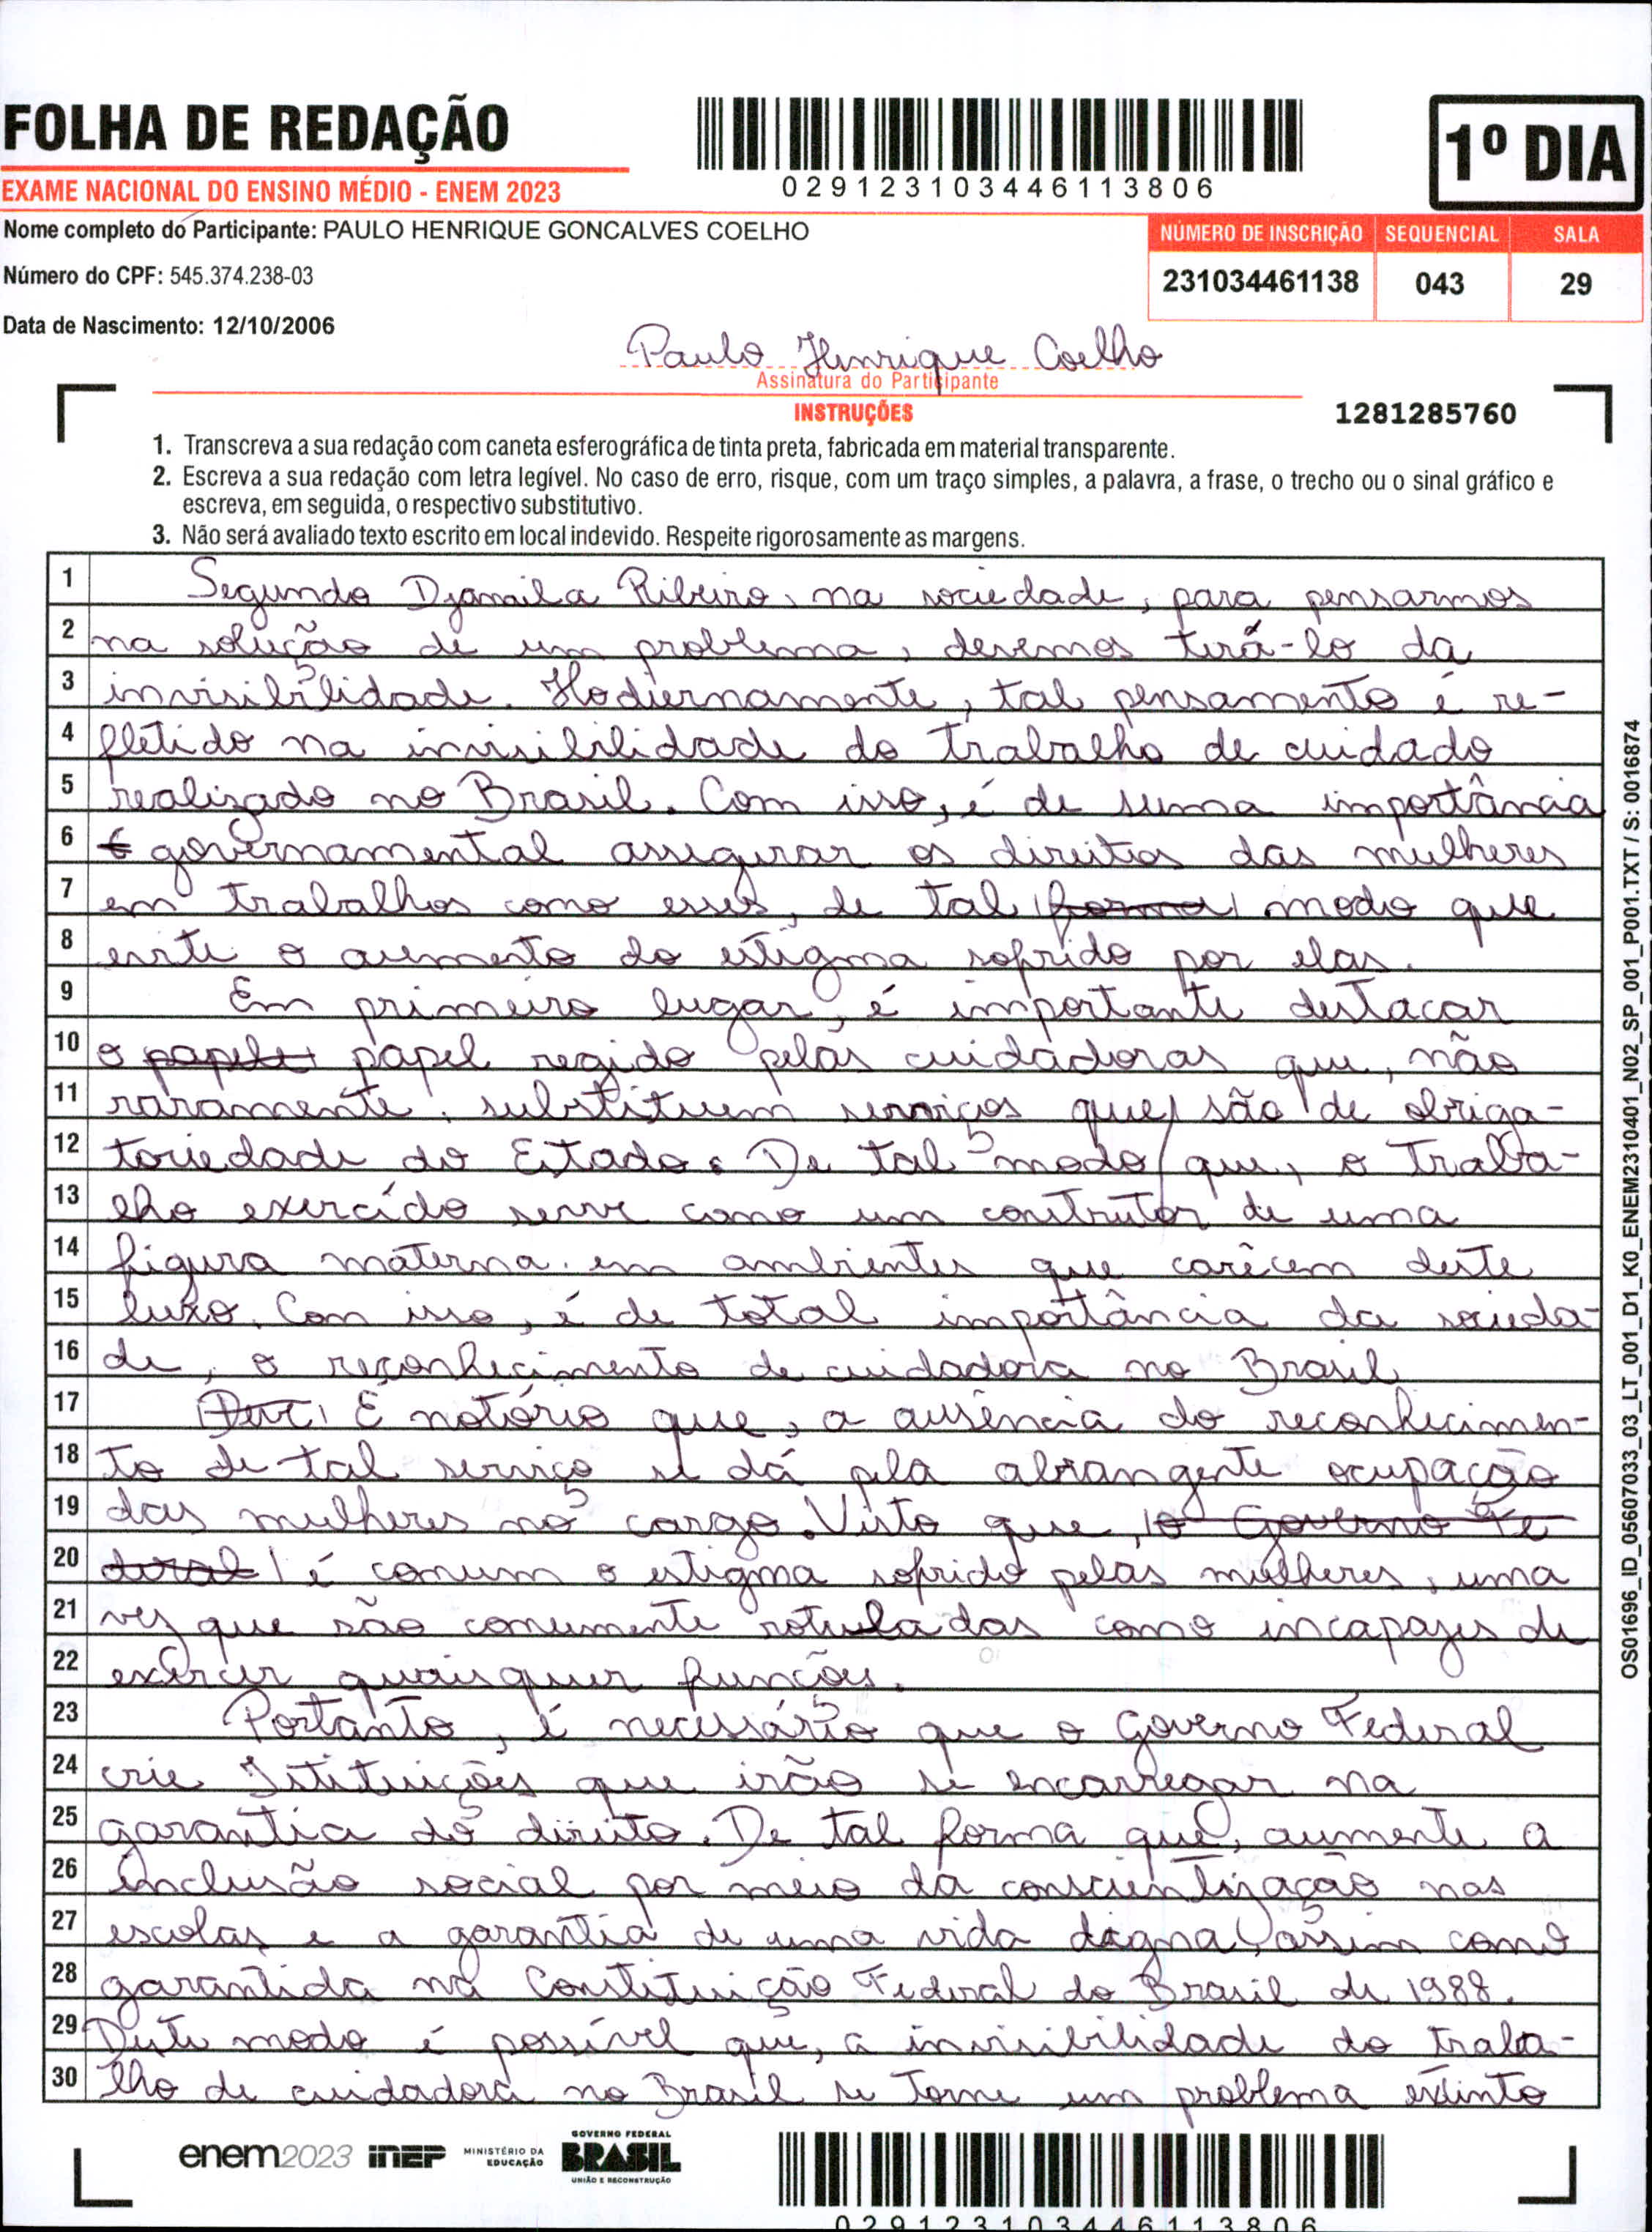 FOLHA DE REDAÇÃO
EXAME NACIONAL DO ENSINO MÉDIO - ENEM 2023
029123103446113806
1º DIA
Nome completo do Participante: PAULO HENRIQUE GONCALVES COELHO
Número do CPF: 545.374.238-03
Data de Nascimento: 12/10/2006
NÚMERO DE INSCRIÇÃO SEQUENCIAL SALA
231034461138 043 29
Paulo Henrique Coelho
Assinatura do Participante
INSTRUÇÕES
1281285760
1. Transcreva a sua redação com caneta esferográfica de tinta preta, fabricada em material transparente.
2. Escreva a sua redação com letra legível. No caso de erro, risque, com um traço simples, a palavra, a frase, o trecho ou o sinal gráfico e
escreva, em seguida, o respectivo substitutivo.
3. Não será avaliado texto escrito em local indevido. Respeite rigorosamente as margens.
1 Segundo Djamila Ribeiro, na sociedade, para pensarmos
2 na solução de um problema, devemos tirá-lo da
3 invisibilidade. Hodiernamente, tal pensamento é re-
4 fletido na invisibilidade do trabalho de cuidado
5 realizado no Brasil. Com isso, é de suma importância
6 governamental assegurar os direitos das mulheres
7 em trabalhos como esses, de tal (forma) modo que
8 evite o aumento do estigma sofrido por elas.
9 Em primeiro lugar, é importante destacar
10 o papel papel regido pelas cuidadoras que, não
11 raramente, substituem serviços que são de obriga-
12 toriedade do Estado. De tal modo que, o traba-
13 lho exercído serve como um contrutor de uma
14 figura materna em ambientes que carêcem deste
15 luxo. Com isso, é de total importância da socieda-
16 de, o reconhecimento de cuidadora no Brasil
17 É notório que, a ausência do reconhecimen-
18 to de tal serviço se dá pela abrangente ocupação
19 das mulheres no cargo. Visto que, (o Governo Fe
20 deral) é comum o estigma sofrido pelas mulheres, uma
21 vez que são comumente rotuladas como incapazes de
22 exercer quaisquer funções.
23 Portanto, é necessário que o Governo Federal
24 crie Istituições que irão se encarregar na
25 garantia do direito. De tal forma que, aumente a
26 inclusão social por meio da conscientização nas
27 escolas e a garantia de uma vida digna, assim como
28 garantida na Constituição Federal do Brasil de 1988.
29 Deste modo é possível que, a invisibilidade do traba-
30 lho de cuidadora no Brasil se torne um problema extinto
OS01696_ID_05607033_03_LT_001_D1_K0_ENEM2310401_N02_SP_001_P001.TXT / S: 0016874
enem2023 inep MINISTÉRIO DA EDUCAÇÃO GOVERNO FEDERAL BRASIL UNIÃO E RECONSTRUÇÃO
029123103446113806